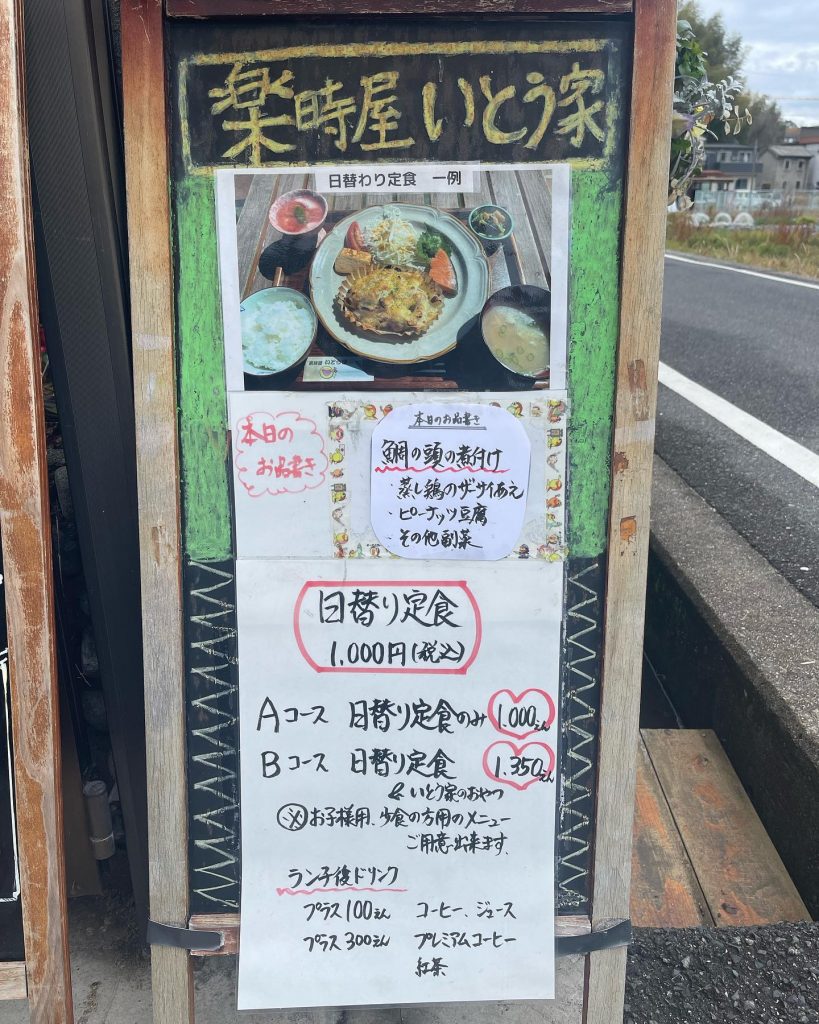 楽時屋 いとう家
日替わり定食 一例
本日の
お品書き
本日のお品書き
鯛の頭の煮付け
・蒸し鶏のザーサイあえ
・ピーナッツ豆腐
・その他副菜
日替り定食
1,000円(税込)
Aコース 日替り定食のみ 1.000えん
Bコース 日替り定食 1.350えん
& いとう家のおやつ
※お子様用、少食の方用のメニュー
ご用意出来ます。
ランチ後ドリンク
プラス100えん コーヒー、ジュース
プラス300えん プレミアムコーヒー
紅茶